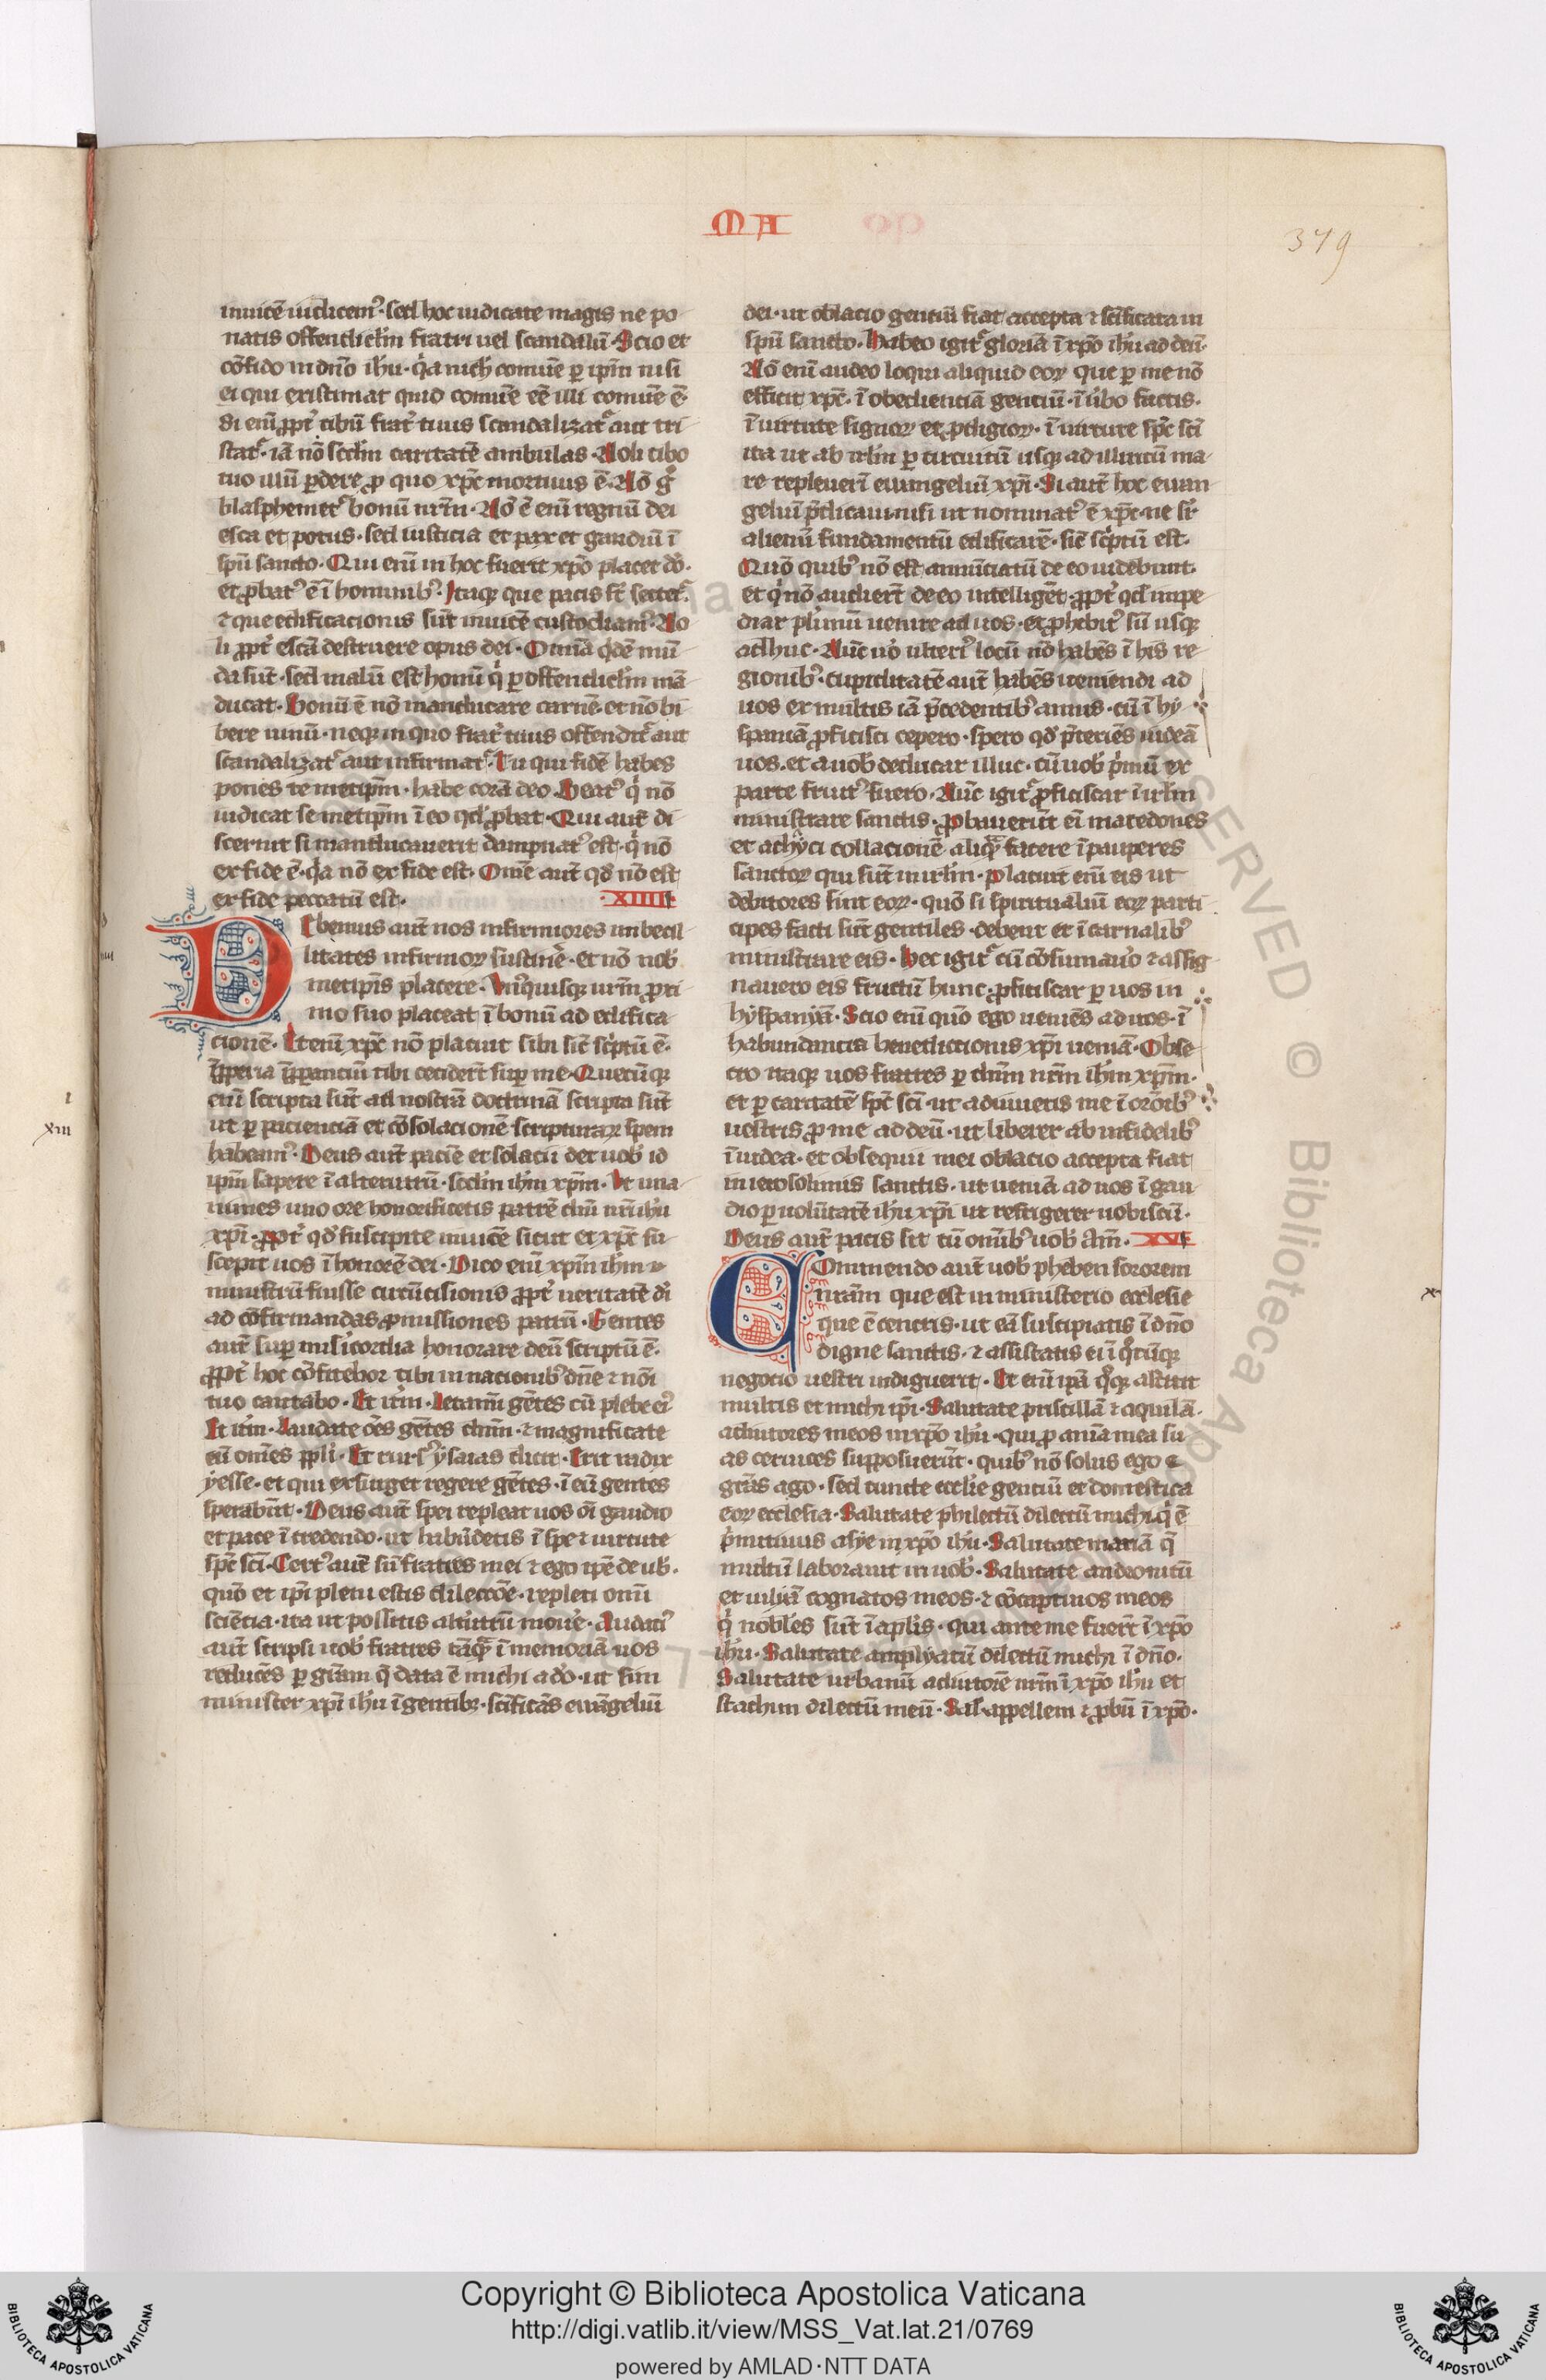 MA
379
inuicē iudicem⁹· sed hoc iudicate magis ne po
natis offendicl'm fratri uel scandalū· Scio et
cōfido in dn̄o ih'u· q'a nich' comūe ꝑ ip̄m nisi
ei qui existimat quid comūe eē illi comūe ē·
Si eniꝫ ꝓpt' cibū frat' tuus scandalizat᷑ aut tri
stat᷑· iā nō scd'm caritatē ambulas· Noli cibo
tuo illū ꝑdere ꝓ quo xp̄c mortuus ē· Nō g°
blasphemet᷑ bonū nr̄m· Nō ē enī regnū dei
esca et potus· sed iusticia et pax et gaudiū ī
spū sancto· Qui enī in hoc fuerit xp̄o placet dō·
et ꝓbat⁹ ē ī hominib⁹· Itaqꝫ que pacis st̄ sectet᷑
⁊ que edificacionis sūt inuicē custodiam⁹· No
li ꝓpt' escā destruere opus dei· Omīa qdē mū
da sūt· sed malū est homī q' ꝑ offendicl'm mā
ducat· Bonū ē nō manducare carnē· et nō bi
bere uinū· neqꝫ in quo frat' tuus offendit᷑ aut
scandalizat᷑ aut infirmat᷑· Tu qui fidē habes
pones te metip̄m· habe corā deo· Beat⁹ q' nō
iudicat se metip̄m ī eo qd' ꝓbat· Qui aut̄ di
scernit si manducauerit dampnat⁹ est· q' nō
ex fide ē· q'a nō ex fide est· Omē aut̄ qd' nō est
ex fide peccatū est· XIIII
DEbemus aut̄ nos infirmiores imbecil
litates infirmoꝝ sustinē'· et nō nob'
metip̄is placere· Vn⁹quisqꝫ ur̄m ꝓxi
mo suo placeat ī bonū ad edifica
cionē· Etenī xp̄c nō placuit sibi sic̄ sc'ptū ē·
īꝓperia īꝓperanciū tibi ceciderūt suꝑ me· Quecūqꝫ
enī scripta sūt ad nostrā doctrinā scripta sūt
ut ꝑ pacienciā et cōsolacionē scripturaꝝ spem
habeam⁹· Deus aut̄ paciē et solacii det uob' id
ip̄m sapere ī alterutrū· scd'm ih'm xp̄m· Vt una
nimes uno ore honorificetis patrē dn̄i nr̄i ih'u
xp̄i· ꝓpt' qd' suscipite inuicē sicut et xp̄c su
scepit uos ī honorē dei· Dico enī xp̄m ih'm
ministrū fuisse circūcisionis ꝓpt' ueritatē d'i
ad cōfirmandas ꝓmissiones patrū· Gentes
aut̄ suꝑ mis'icordia honorare deū scriptū ē·
ꝓpt' hoc cōfitebor tibi in nacionib⁹ dn̄e ⁊ nōi
tuo cantabo· Et it'm· Letamī gētes cū plebe ei⁹
Et it'm· Laudate ōēs gētes dn̄m· ⁊ magnificate
eū omēs ppl'i· Et rurs⁹ ysaias dicit· Erit radix
yesse· et qui exsurget regere gētes· ī eū gentes
sperabūt· Deus aut̄ spei repleat uos ōi gaudio
et pace ī credendo· ut habūdetis ī spe ⁊ uirtute
spc̄ sc̄i· Cert⁹ autē sū fratres mei ⁊ ego ip̄e de ub'·
quō et ip̄i pleni estis dileccōe· repleti omī
sciētia· ita ut possitis altiutrū mone'· Audaci⁹
aut̄ scripsi uob' fratres tāqꝫ ī memoriā uos
reducēs ꝑ grām q̄ data ē michi a dō· ut sim
minister xp̄i ih'u ī gentibꝫ· sc̄ificās euāgeliū
dei· ut oblacio gentiū fiat accepta ⁊ sc̄ificata in
spū sancto· Habeo igit᷑ gloriā ī xp̄o ih'u ad deū·
Nō enī audeo loqui aliquid eoꝝ que ꝑ me nō
efficit xp̄c· ī obedienciā gentiū· ī ūbo factis·
ī uirtute signoꝝ et ꝓdigioꝝ· ī uirtute spc̄ sc̄i
ita ut ab irl'm ꝑ circuitū usqꝫ ad illiricū ma
re repleuerī euuangeliū xp̄i· Si aut̄ hoc euan
geliū p̄dicaui· nisi ut nominat⁹ ē xp̄c· ne sr̄
alienū fundamentū edificarē· sic̄ sc'ptū est·
Quō quib⁹ nō est annūciatū de eo uidebunt·
et q' nō audiert̄ de eo intelligēt· ꝓpt' qd' impe
diar pl'imū uenire ad uos· et ꝓhibit⁹ sū usqꝫ
adhuc· Nūc u'o ulteri⁹ locū nō habēs ī his re
gionib⁹· cupiditatē aut̄ habēs ueniendi ad
uos ex multis iā p̄cedentib⁹ annis· cū ī hy
spaniā ꝓficisci cepero· spero qd' p̄teriēs uideā
uos· et a uob' deducar illuc· cū uob' p'mū ex
parte fruit⁹ fuero· Nūc igit᷑ ꝓficiscar ī irl'm
ministrare sanctis· ꝓbauerūt eī macedones
et achyci collacionē aliqꝫ facere ī pauperes
sanctoꝝ qui sūt in irl'm· placuit enī eis ut
debitores sint eoꝝ· quō si spiritualiū eoꝝ parti
cipes facti sūt gentiles· debent et ī carnalib⁹
ministrare eis· Hec igit᷑ cū cōsumau'o ⁊ assig
nauero eis fructū hunc· ꝓficiscar ꝑ uos in
hyspanyā· Scio enī quō ego ueniēs ad uos· ī
habundancia benediccionis xp̄i ueniā· Obse
cro itaqꝫ uos fratres ꝑ dn̄m nr̄m ih'm xp̄m·
et ꝑ caritatē spc̄ sc̄i· ut adiuuetis me ī orōib⁹
uestris ꝓ me ad deū· ut liberer ab infidelib⁹
ī iudea· et obsequii mei oblacio accepta fiat
in ierosolimis sanctis· ut ueniā ad uos ī gau
dio ꝑ uolūtatē ih'u xp̄i ut refrigerer uobiscū·
Deus aut̄ pacis sit cū omīb⁹ uob' am̄· XVI
COmmendo aut̄ uob' pheben sororem
nr̄am que est in ministerio ecclesie
que ē cencris· ut eā suscipiatis ī dn̄o
digne sanctis· ⁊ assistatis ei ī q°cūqꝫ
negocio uestri indiguerit· Et enī ip̄a q°qꝫ astitit
multis et michi ip̄i· Salutate priscillā ⁊ aquilā·
adiutores meos in xp̄o ih'u· qui ꝓ anīa mea su
as ceruices supposuerūt· quib⁹ nō solus ego
grās ago· sed cuncte eccl'ie gentiū et domestica
eoꝝ ecclesia· Salutate philectū dilectū michi q' ē
p'mitiuus asye in xp̄o ih'u· Salutate mariā q̄
multū laborauit in uob'· Salutate andeonicū
et iuliā cognatos meos· ⁊ cōcaptiuos meos
q' nobles sūt ī apl'is· qui ante me fuert̄ ī xp̄o
ih'u· Salutate amplyatū dilectū michi ī dn̄o·
Salutate urbanū adiutorē nr̄m ī xp̄o ih'u et
stachin dilectū meū· Sal· appellem ⁊ ꝓbū ī xp̄o·
Copyright © Biblioteca Apostolica Vaticana
http://digi.vatlib.it/view/MSS_Vat.lat.21/0769
powered by AMLAD·NTT DATA
BIBLIOTECA APOSTOLICA VATICANA
BIBLIOTECA APOSTOLICA VATICANA